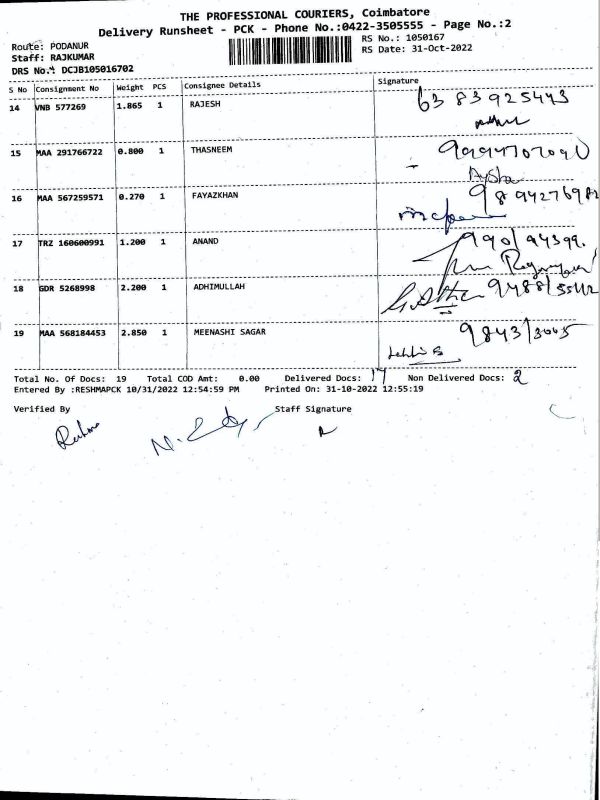 THE PROFESSIONAL COURIERS, Coimbatore
Delivery Runsheet - PCK - Phone No.:0422-3505555 - Page No.:2
Route: PODANUR
RS No.: 1050167
Staff: RAJKUMAR
RS Date: 31-Oct-2022
DRS No.: DCJB105016702
S No Consignment No Weight PCS Consignee Details Signature
14 VNB 577269 1.865 1 RAJESH 6383925443
15 MAA 291766722 0.800 1 THASNEEM
Aysha
16 MAA 567259571 0.270 1 FAYAZKHAN
17 TRZ 160600991 1.200 1 ANAND
18 GDR 5268998 2.200 1 ADHIMULLAH
19 MAA 568184453 2.850 1 MEENASHI SAGAR
Total No. Of Docs: 19 Total COD Amt: 0.00 Delivered Docs: 17 Non Delivered Docs: 2
Entered By :RESHMAPCK 10/31/2022 12:54:59 PM Printed On: 31-10-2022 12:55:19
Verified By Staff Signature